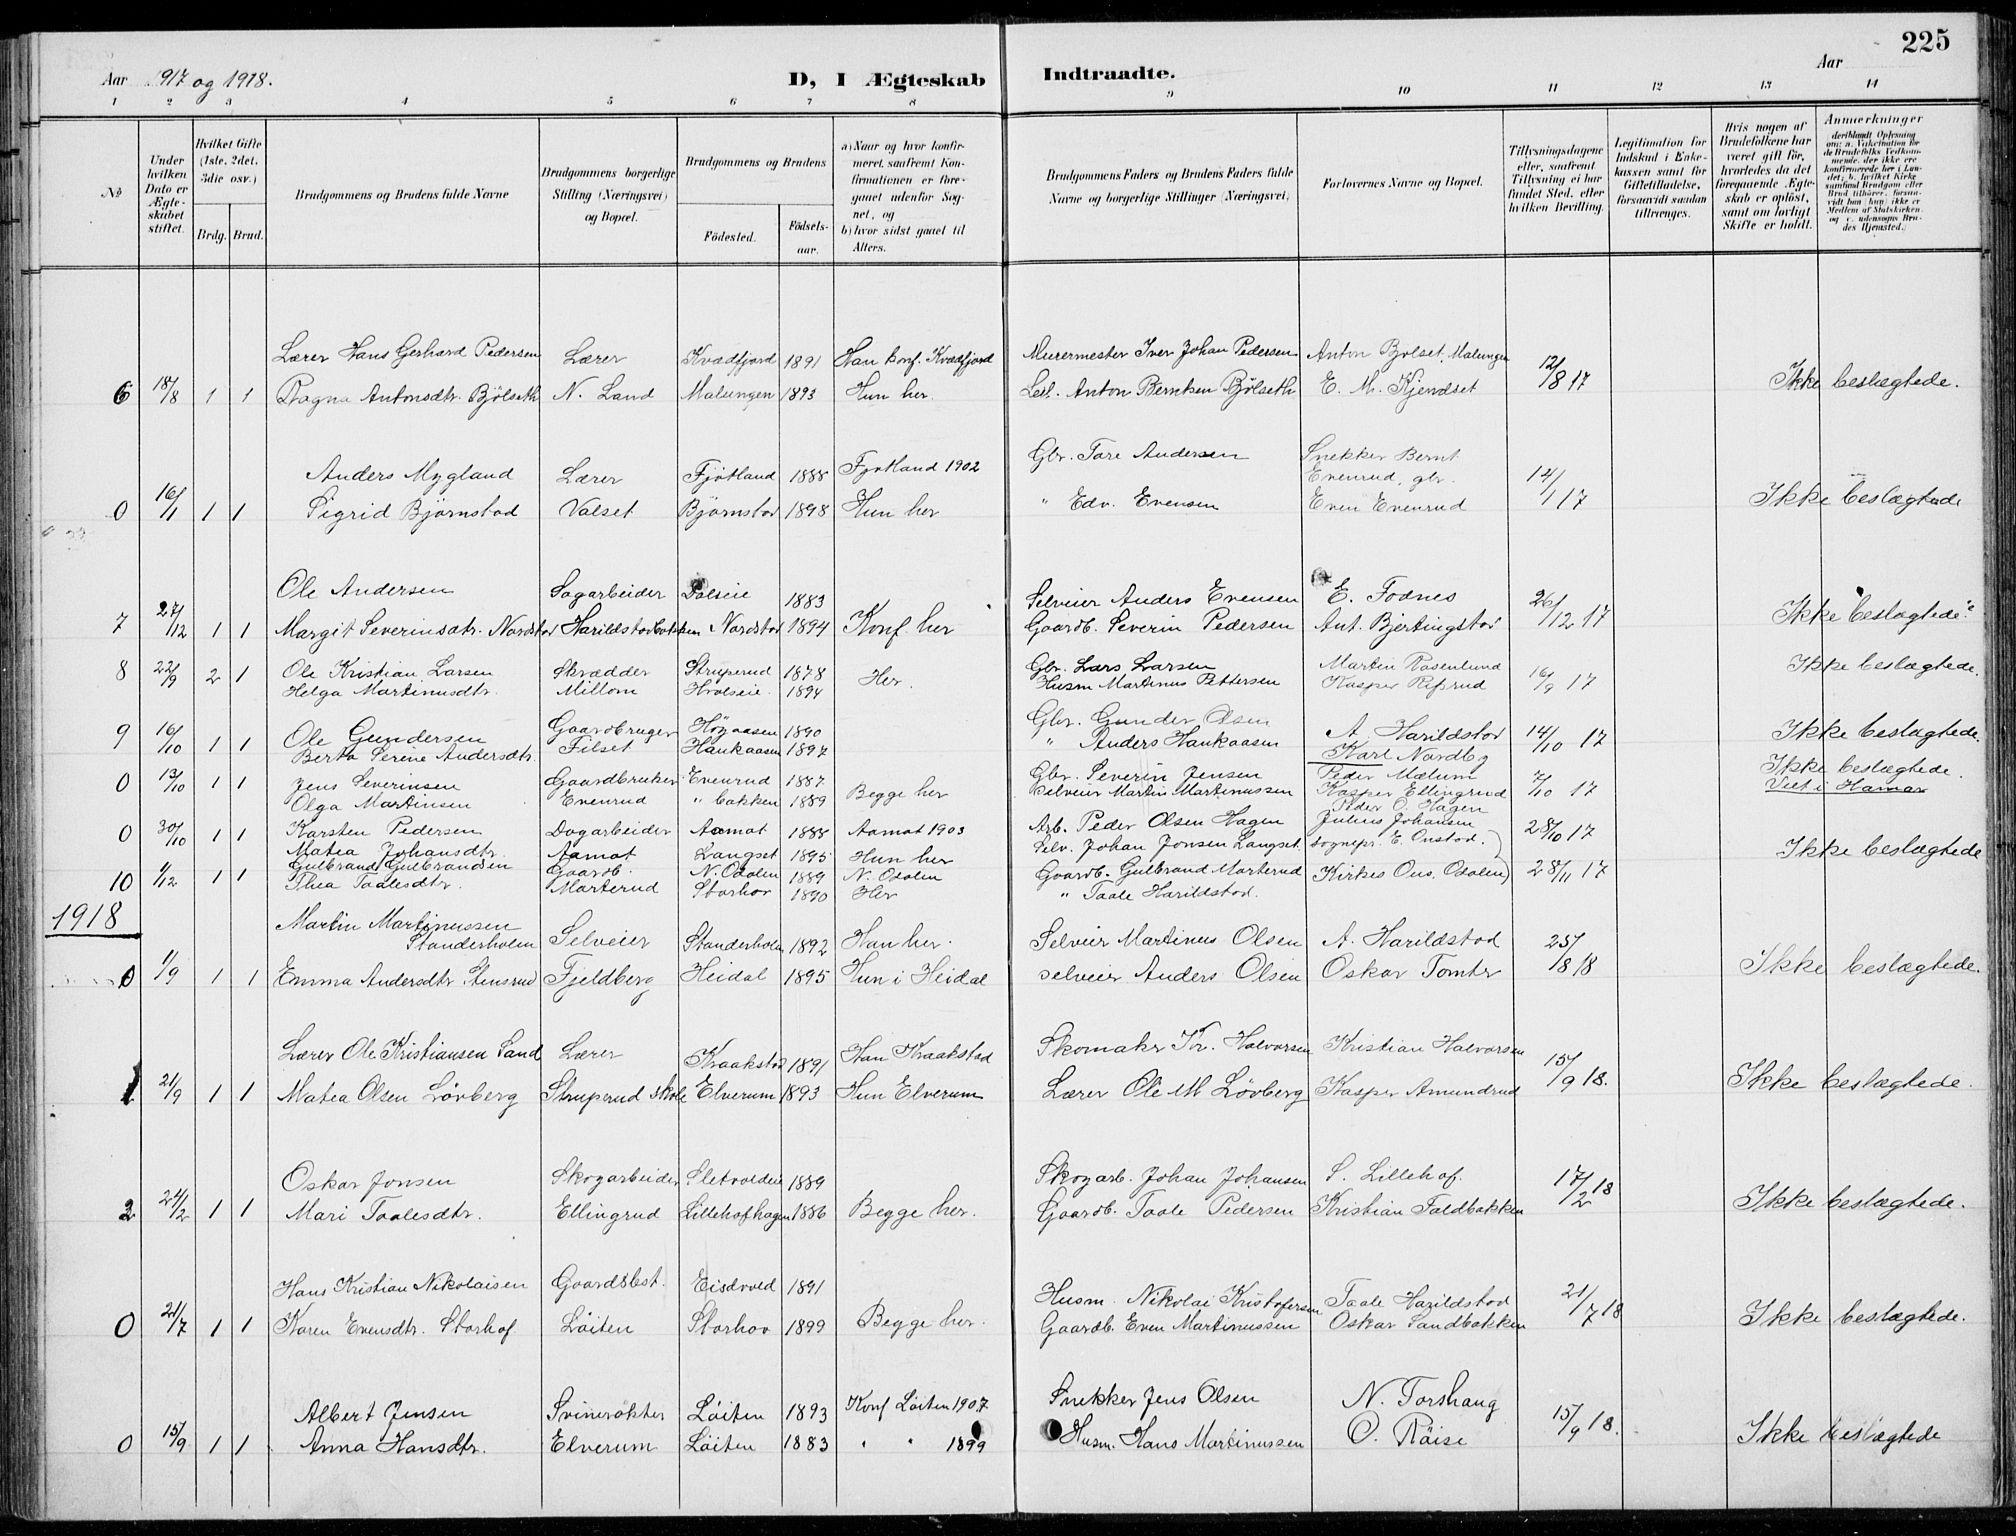 225
Aar 1917 og 1918.
D, I Ægteskab Indtraadte.
Aar
1 2 3 4 5 6 7 8 9 10 11 12 13 14
No
Under hvilken Dato er Ægteskabet stiftet.
Hvilket Gifte (1ste, 2det, 3die osv.)
Brdg. Brud.
Brudgommens og Brudens fulde Navne
Brudgommens borgerlige Stilling (Næringsvei) og Bopæl.
Brudgommens og Brudens
Fødested. Fødselsaar.
a) Naar og hvor konfirmeret, saafremt Konfirmationen er foregaaet udenfor Sognet, og b) hvor sidst gaaet til Alters.
Brudgommens Faders og Brudens Faders fulde Navne og borgerlige Stillinger (Næringsvei)
Forlovernes Navne og Bopæl.
Tillysningsdagene eller, saafremt Tillysning ei har fundet Sted, efter hvilken Bevilling.
Legitimation for Indskud i Enkekassen samt for Giftetilladelse, forsaavidt saadan tiltrænges.
Hvis nogen af Brudefolkene har været gift før, hvorledes da det foregaaende Ægteskab er opløst, samt om lovligt Skifte er holdt.
Anmerkninger
Lærer Hans Gerhard Pedersen Lærer Kvædfjord 1891 Han konf. Kvædfjord Murermester Iver Johan Pedersen Anton Bjølset, Malungen 12/8 17
6 18/8 1 1 Ragna Antonsdtr. Bjölseth N. Land Malungen 1893 Hun her. Anton Berntsen Bjølseth E. M. Kjendset Ikke beslægtede.
Anders Mygland Lærer Fjötland 1888 Fjotland 1902 Gbr. Tore Andersen Snekker Bernt Evenrud, gbr. 14/1 17
0 16/1 1 1 Sigrid Björnstad Valset Björnstad 1898 Hun her " Edv. Evensen Even Evenrud Ikke beslægtede
Ole Andersen Sagarbeider Dalseie 1883 Selveier Anders Evensen E. Fodnes 26/12 17
7 27/12 1 1 Margit Severinsdtr. Nordstad Harildstadbakken Nordstad 1894 Konf. her Gaardb. Severin Pedersen Ant. Bjertingstad Ikke beslægtede.
8 22/9 2 1 Ole Kristian Larsen Skrædder Struperud 1878 Her. Gbr. Lars Larsen Martin Rosenlund 16/9 17 Ikke beslægtede.
Helga Martinusdtr. Millom Hvalseie. 1894 Husm Martinus Pettersen Kasper
9 16/10 1 1 Ole Gundersen Gaardbruger Høgaasen 1890 Gbr. Gunder Olsen A. Harildstad 14/10 17 Ikke beslægtede.
Berta Serine Andersdtr. Filset Hankaasen 1897 " Anders Hankaasen Karl Nordby
0 13/10 1 1 Jens Severinsen Gaardbruker Evenrud 1887 Begge her Gbr. Severin Jensen Peder Mælum 7/10 17 Ikke beslægtede.
Olga Martinsen Evenrud " bakken 1889 Selveier Martin Martinussen Kasper Ellingrud Viet i Hamar
0 30/10 1 1 Karsten Pedersen Dagarbeider Aamot 1888 Aamot 1903 Arb. Peder Olsen Hagen Peder O. Hagen Julius Johansen 28/10 17
Matea Johansdtr. Aamot Langset 1895 Hun her Selv. Johan Jonsen Langset. sognepr. E. Onstad. Ikke beslægtede
10 1/12 1 1 Gulbrand Gulbrandsen Gaardb. N. Odalen 1889 N. Odalen Gaardb. Gulbrand Marterud Kirkes Ons. Odalen) 28/11 17
Thea Taalesdtr. Marterud Storhov 1890 Her " Taale Harildstad.
1918
Martin Martinussen Standerholm Selveier Standerholm 1892 Han her. Selveier Martinus Olsen A. Harildstad 25/8 18
0 1/9 1 1 Emma Andersdtr Stensrud Fjeldberg Heidal 1895 Hun i Heidal selveier Anders Olsen Oskar Tomtr Ikke beslægtede.
Lærer Ole Kristiansen Sand Lærer Kraakstad 1891 Han Kraakstad Skomaker Kr. Halvorsen Kristian Halvorsen 15/9 18.
1 21/9 1 1 Matea Olsen Lövberg Struperud skole Elverum 1893 Hun Elverum Lærer Ole M Lövberg Kasper Amundrud Ikke beslægtede.
Oskar Jonsen Skogarbeider Sletvoldeie 1889 Skogarb. Johan Johansen S. Lillehof. 17/2 18
2 24/2 1 1 Mari Taalesdtr. Ellingrud Lillehofhagen 1886 Begge her. Gaardb. Taale Pedersen Kristian Faldbakken Ikke beslægtede.
Hans Kristian Nikolaisen Gaardsbst. Eidsvold 1891 Husm. Nikolai Kristofersen Taale Harildstad 21/7 18
0 21/7 1 1 Karen Evensdtr. Storhof Löiten Storhov 1899 Begge her. Gaardb. Even Martinussen Oskar Sandbakken Ikke beslægtede.
Albert Jensen Svinerökter Löiten 1893 Konf Löiten 1907 Snekker Jens Olsen N. Torshaug 15/9 18.
0 15/9 1 1 Anna Hansdtr. Elverum Löiten 1883 " " 1899 Husm. Hans Martinussen O. Röise Ikke beslægtede